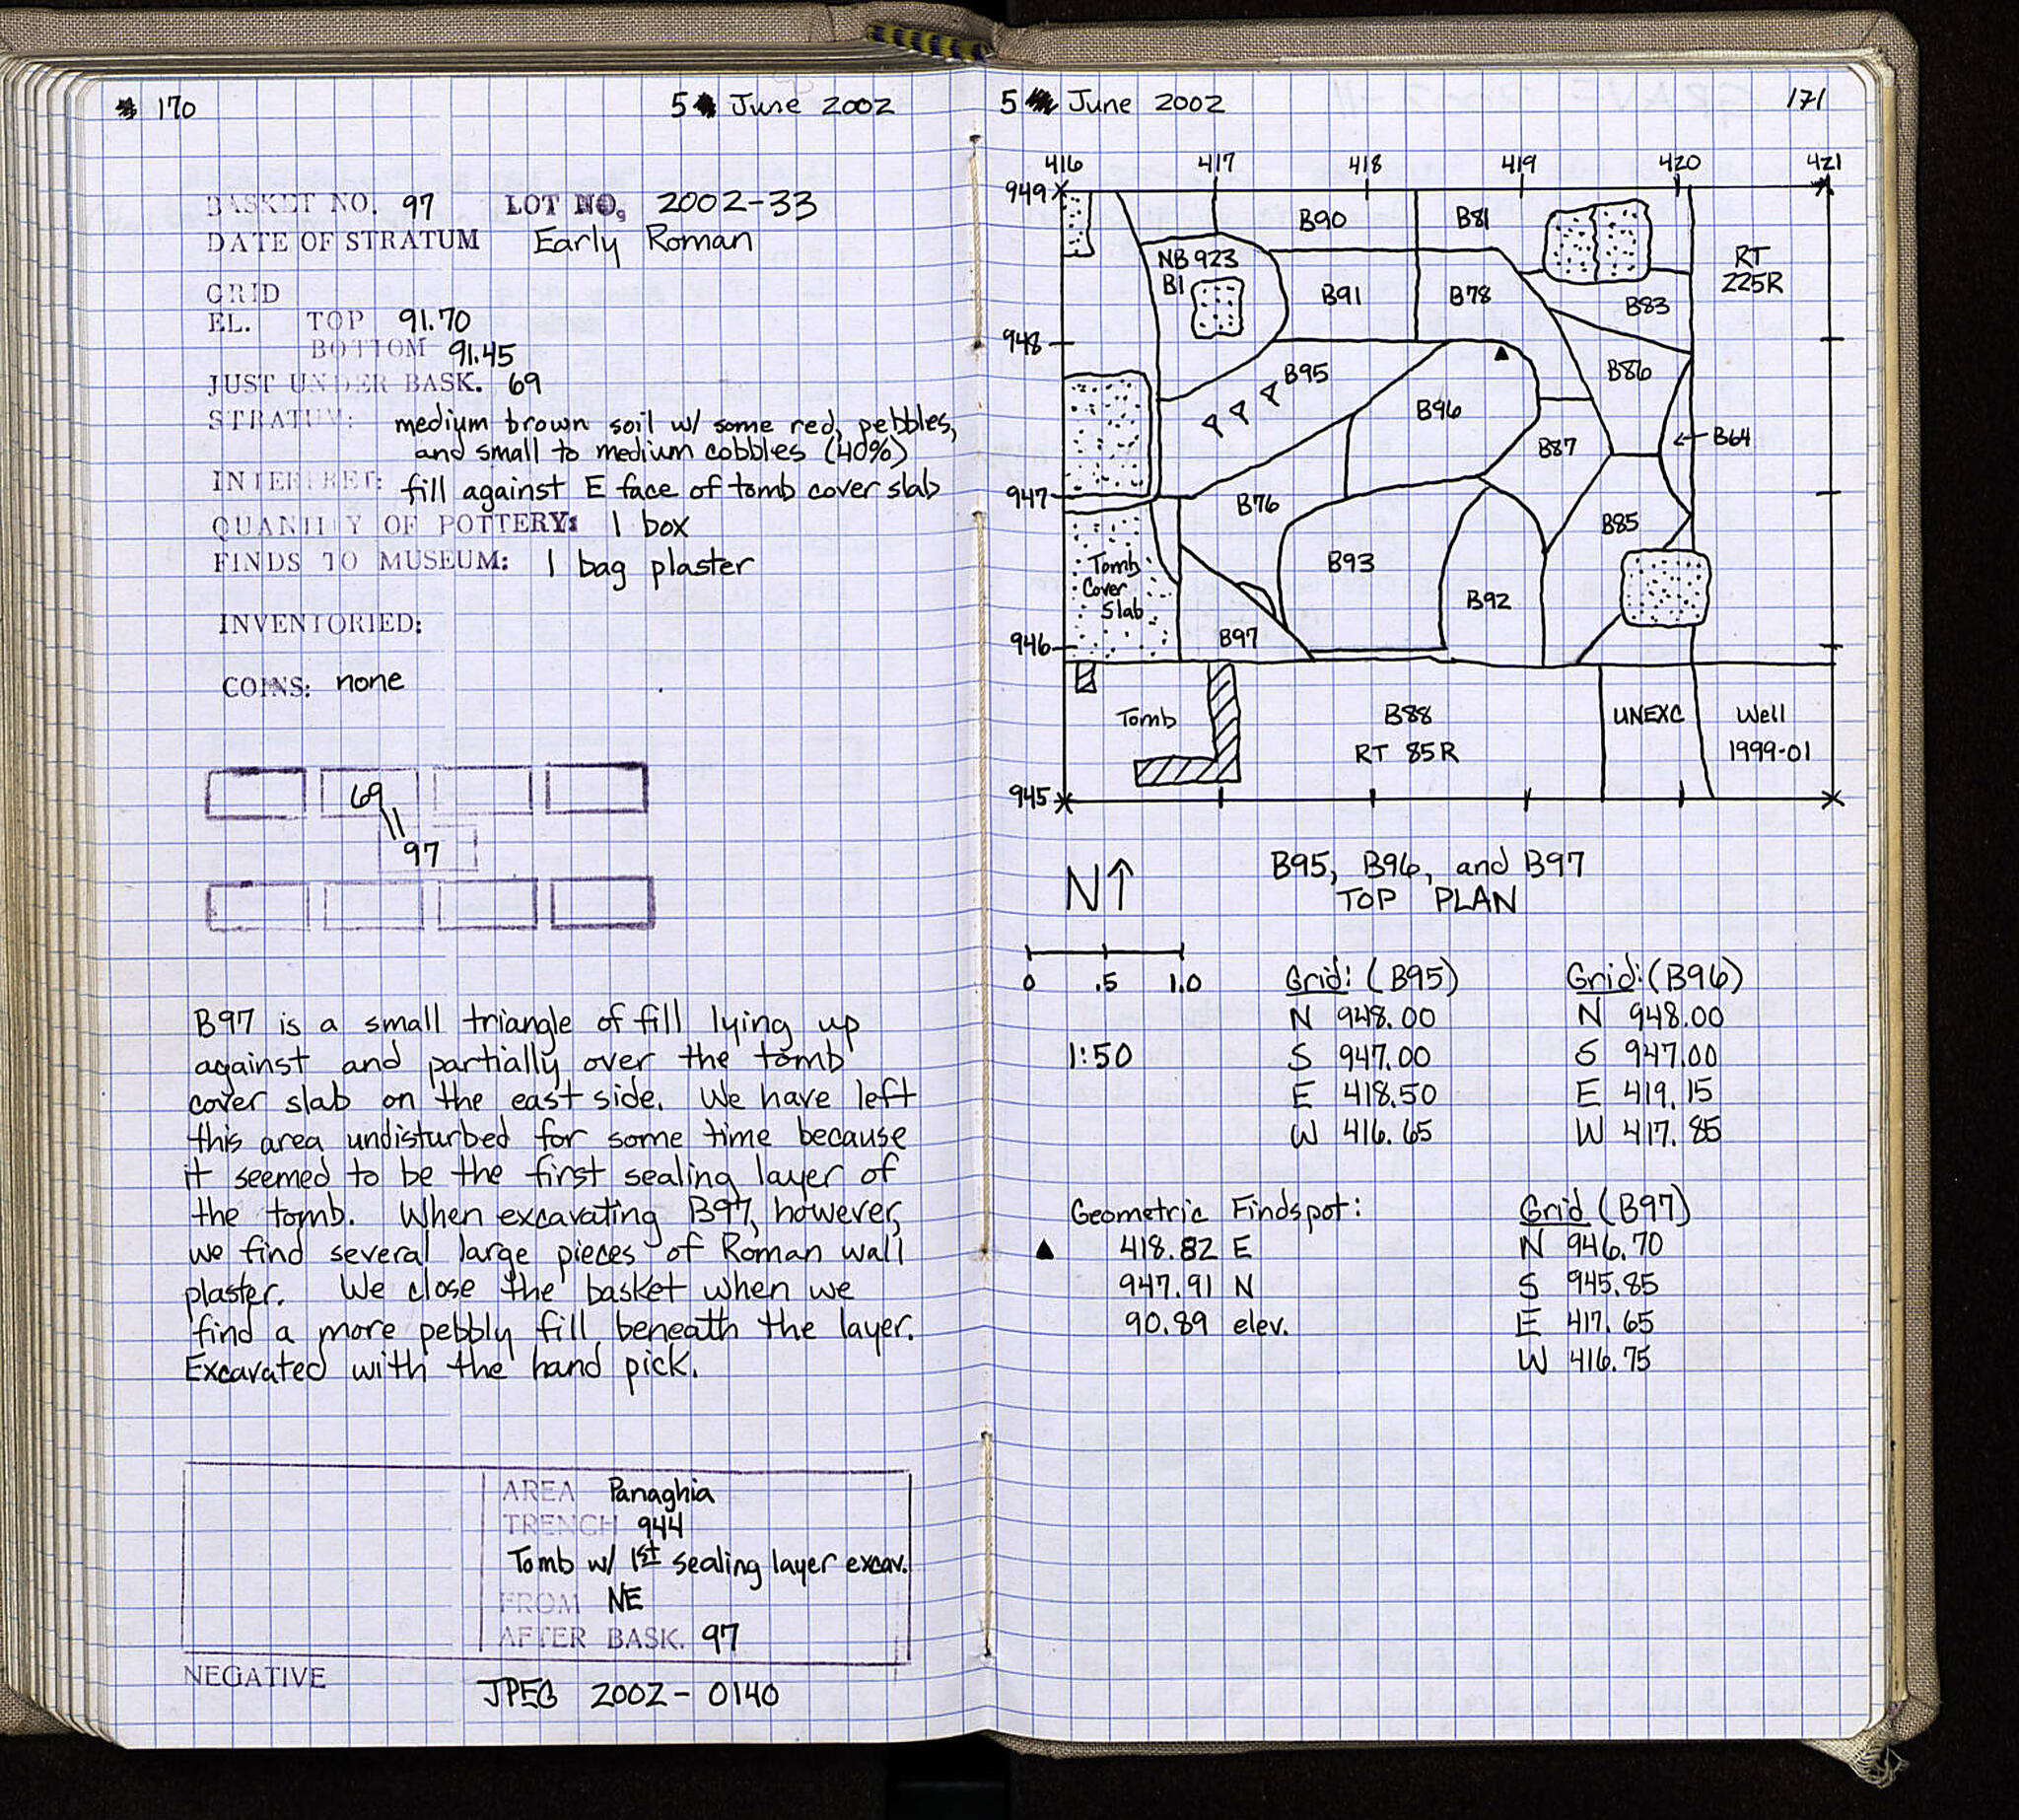 170
5 June 2002
BASKET NO. 97 LOT NO. 2002-33
DATE OF STRATUM Early Roman
GRID
EL. TOP 91.70
BOTTOM 91.45
JUST UNDER BASK. 69
STRATUM: medium brown soil w/ some red, pebbles,
and small to medium cobbles (40%)
INTERPRET: fill against E face of tomb cover slab
QUANTITY OF POTTERY: 1 box
FINDS TO MUSEUM: 1 bag plaster
INVENTORIED:
COINS: none
69
97
B97 is a small triangle of fill lying up
against and partially over the tomb
cover slab on the east side. We have left
this area undisturbed for some time because
it seemed to be the first sealing layer of
the tomb. When excavating B97, however,
we find several large pieces of Roman wall
plaster. We close the basket when we
find a more pebbly fill beneath the layer.
Excavated with the hand pick.
AREA Panaghia
TRENCH 944
Tomb w/ 1st sealing layer excav.
FROM NE
AFTER BASK. 97
NEGATIVE
JPEG 2002-0140
5 June 2002
171
416 417 418 419 420 421
949
B90 B81
NB 923
B1
B91 B78
RT
225R
B83
948
B95
B86
B96
B64
B87
947
B76
B85
Tomb
Cover
Slab
B93
B92
946
B97
Tomb
B88
RT 85R
UNEXC
Well
1999-01
945
N↑
B95, B96, and B97
TOP PLAN
0 .5 1.0
1:50
Grid: (B95)
N 948.00
S 947.00
E 418.50
W 416.65
Grid: (B96)
N 948.00
S 947.00
E 419.15
W 417.85
Geometric Findspot:
▲ 418.82 E
947.91 N
90.89 elev.
Grid (B97)
N 946.70
S 945.85
E 417.65
W 416.75